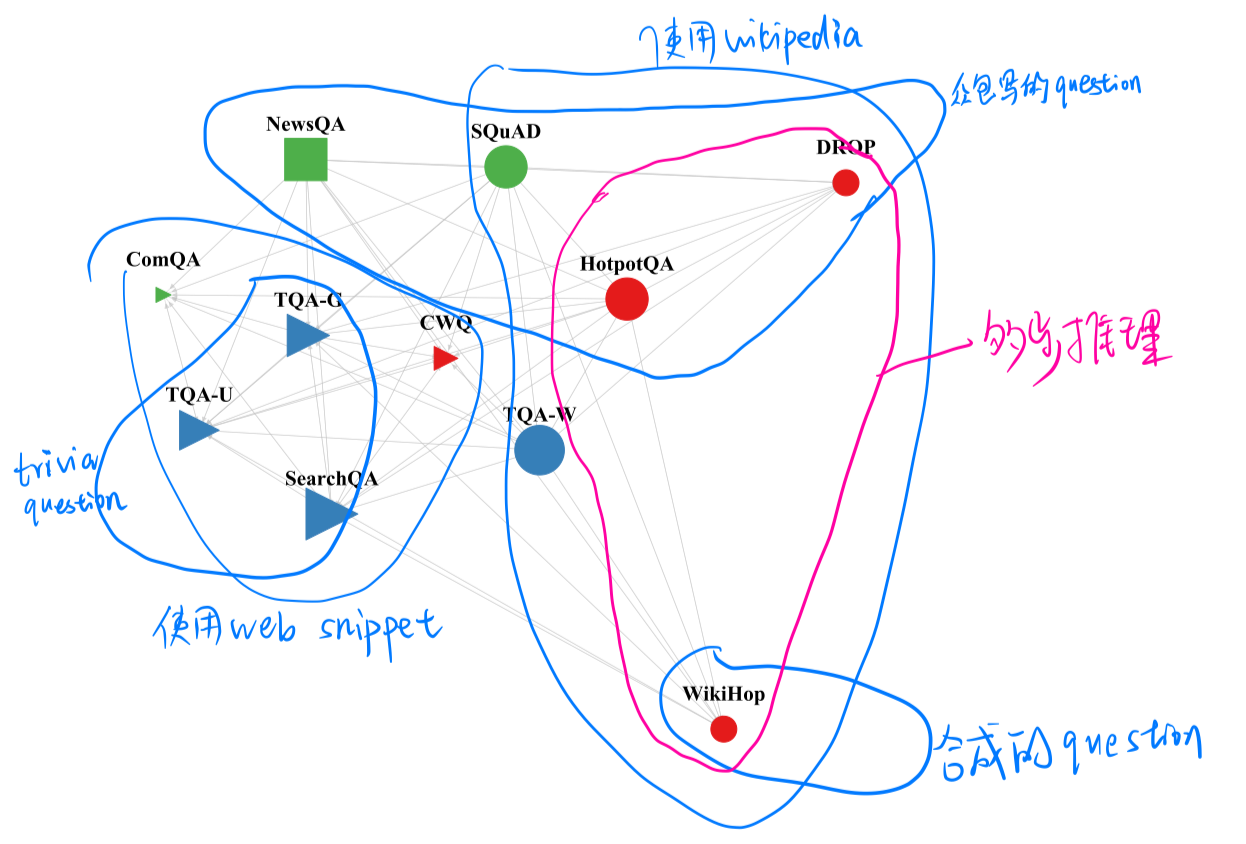 使用wikipedia
众包写的question
NewsQA
SQuAD
DROP
ComQA
HotpotQA
TQA-G
CWQ
多步推理
TQA-U
TQA-W
trivia
question
SearchQA
使用web snippet
WikiHop
合成的question